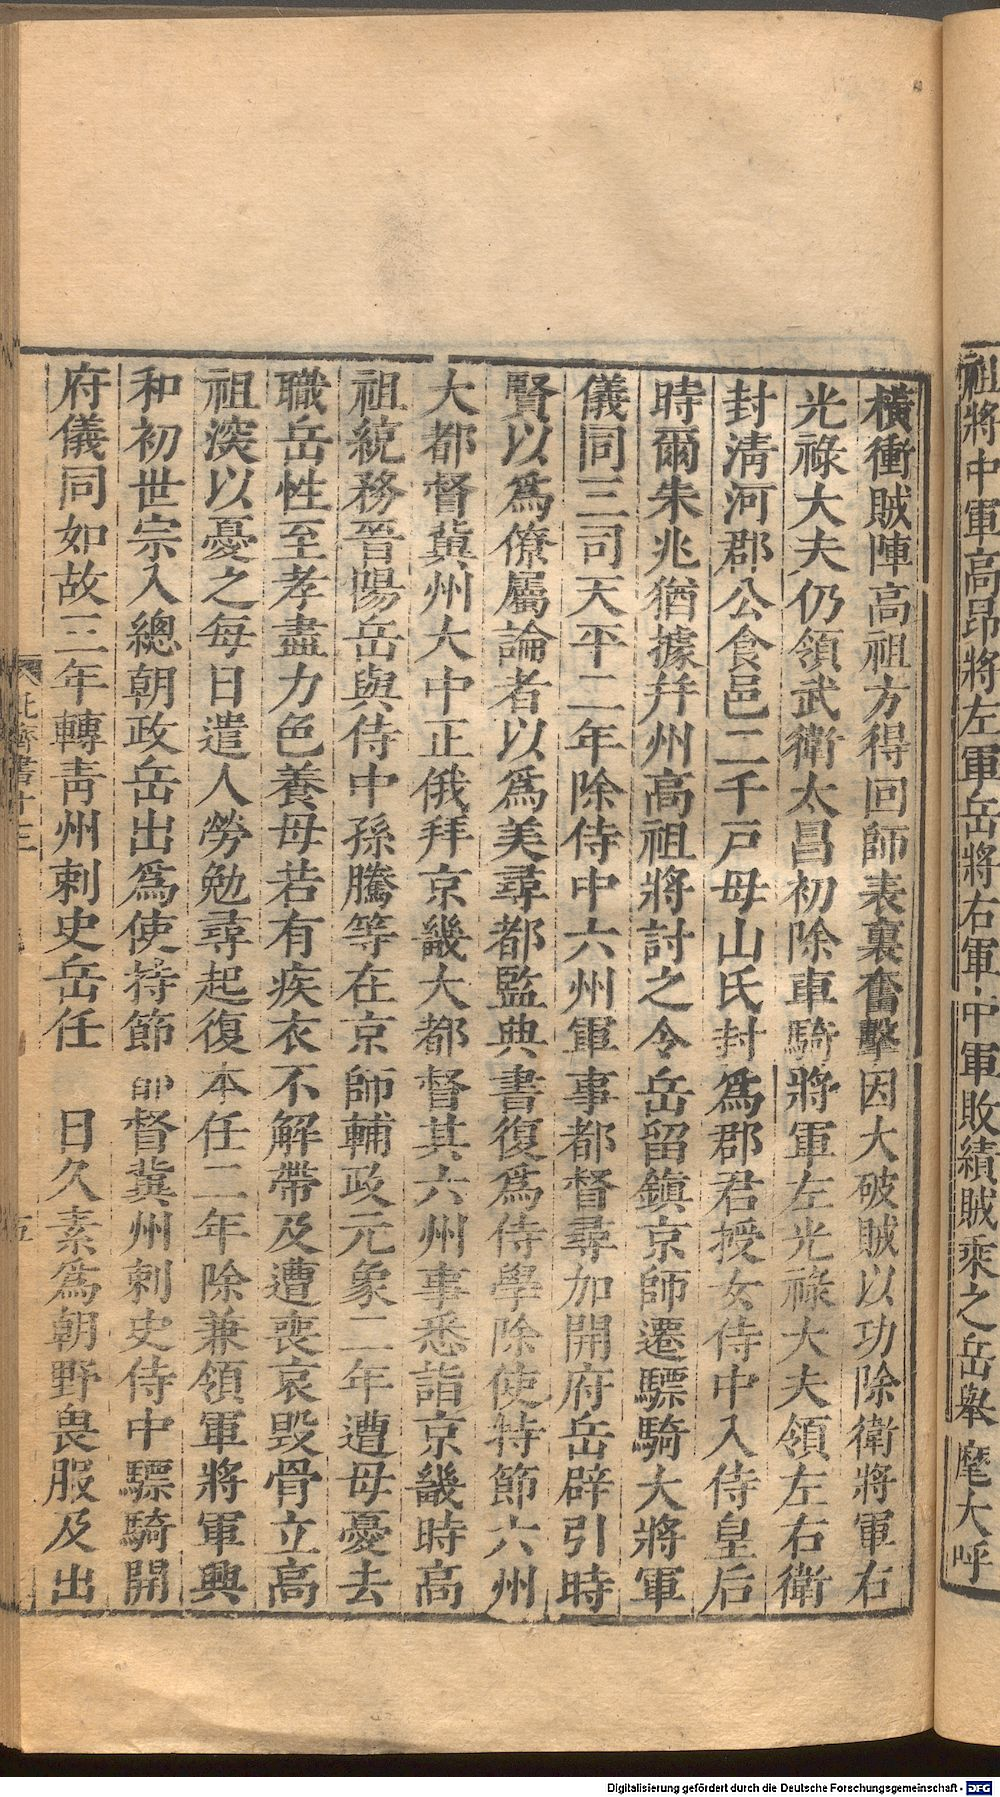 祖將中軍高昂將左軍岳將右軍中軍敗績賊乘之岳舉麾大呼
橫衝賊陣高祖方得回師表裏奮擊因大破賊以功除衛將軍右
光祿大夫仍領武衛太昌初除車騎將軍左光祿大夫領左右衛
封淸河郡公食邑二千戸母山氏封爲郡君授女侍中入侍皇后
時爾朱兆猶據幷州高祖將討之令岳留鎭京師遷驃騎大將軍
儀同三司天平二年除侍中六州軍事都督尋加開府岳辟引時
賢以爲僚屬論者以爲美尋都監典書復爲侍學除使持節六州
大都督冀州大中正俄拜京畿大都督其六州事悉詣京畿時高
祖統務晉陽岳與侍中孫騰等在京師輔政元象二年遭母憂去
職岳性至孝盡力色養母若有疾衣不解帶及遭喪哀毀骨立高
祖深以憂之每日遣人勞勉尋起復本任二年除兼領軍將軍興
和初世宗入總朝政岳出爲使持節督冀州刺史侍中驃騎開
府儀同如故三年轉靑州刺史岳任日久素爲朝野畏服及出
北齊書十三
五
Digitalisierung gefördert durch die Deutsche Forschungsgemeinschaft - DFG